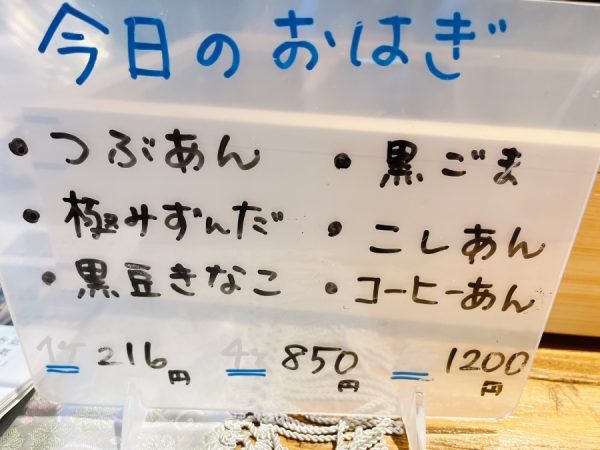 今日のおはぎ
・つぶあん ・黒ごま
・極みずんだ ・こしあん
・黒豆きなこ ・コーヒーあん
1ケ 216円 4ケ 850円 1200円